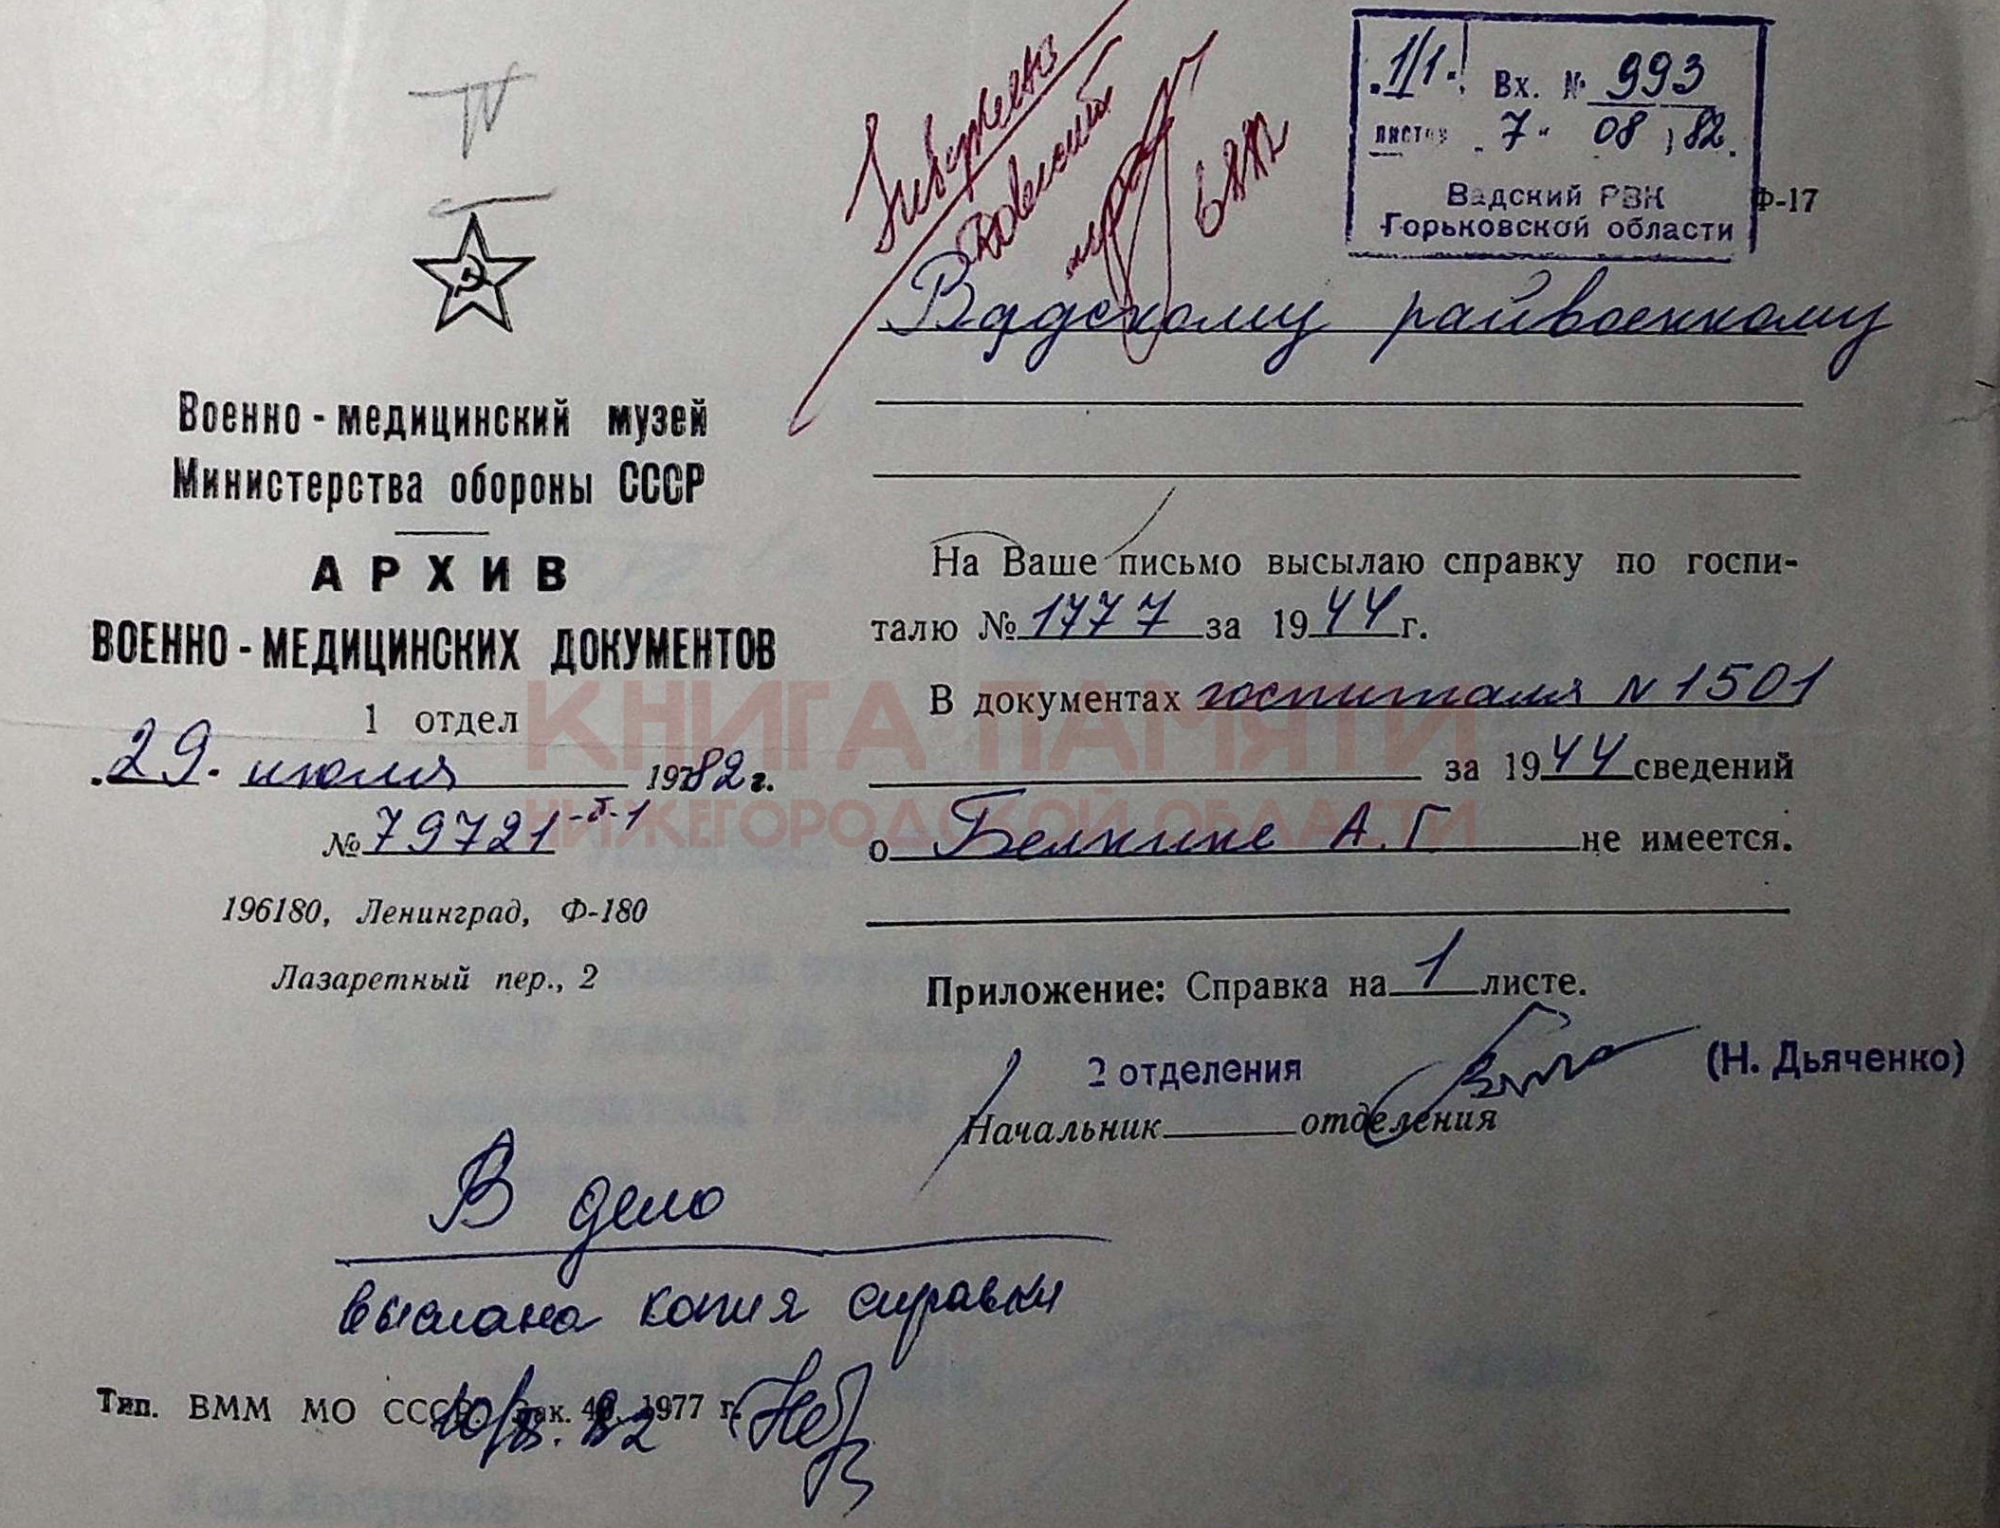 IV
1/1. Вх. № 993
листов „7“ 08 1982.
Вадский РВК
Горьковской области
Ф-17
Военно-медицинский музей
Министерства обороны СССР
АРХИВ
ВОЕННО-МЕДИЦИНСКИХ ДОКУМЕНТОВ
1 отдел
„29“ июля 1982 г.
№ 79721-б-1
196180, Ленинград, Ф-180
Лазаретный пер., 2
Вадскому райвоенкому
На Ваше письмо высылаю справку по госпи-
талю № 1777 за 1944 г.
В документах госпиталя N 1501
за 1944 сведений
о Белкине А.Г. не имеется.
Приложение: Справка на 1 листе.
2 отделения
Начальник отделения
(Н. Дьяченко)
В дело
выслана копия справки
10/8.82
Тип. ВММ МО СССР. Зак. 1977 г.
КНИГА ПАМЯТИ
НИЖЕГОРОДСКОЙ ОБЛАСТИ